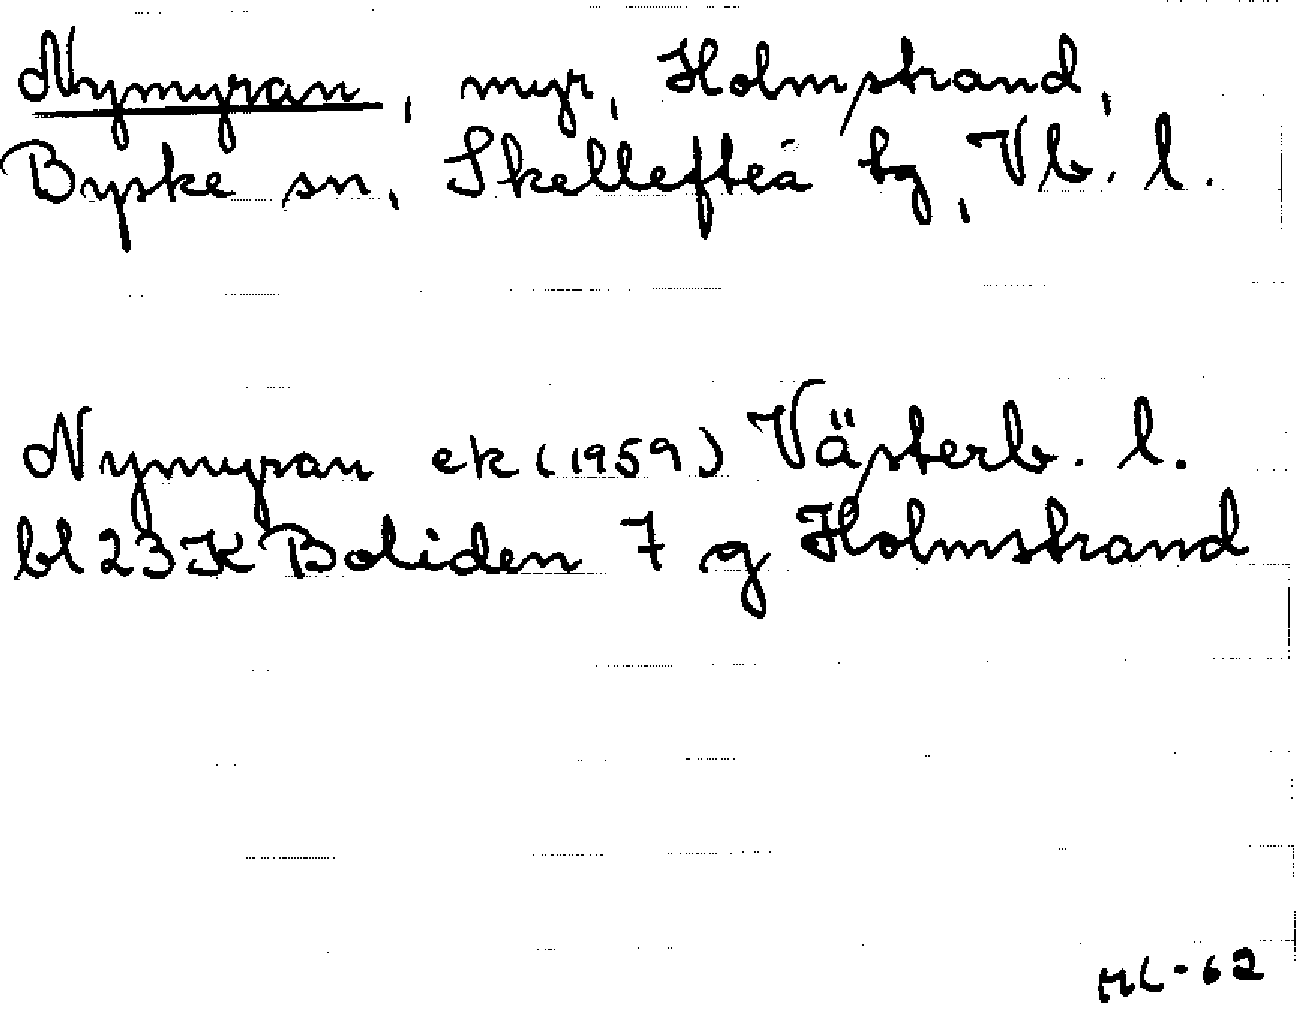 Nymyran, myr, Holmstrand,
Byske sn, Skellefteå tg, Vb. l.
Nymyran ek (1959) Västerb. l.
bl 23K Boliden 7 g Holmstrand
ML-62